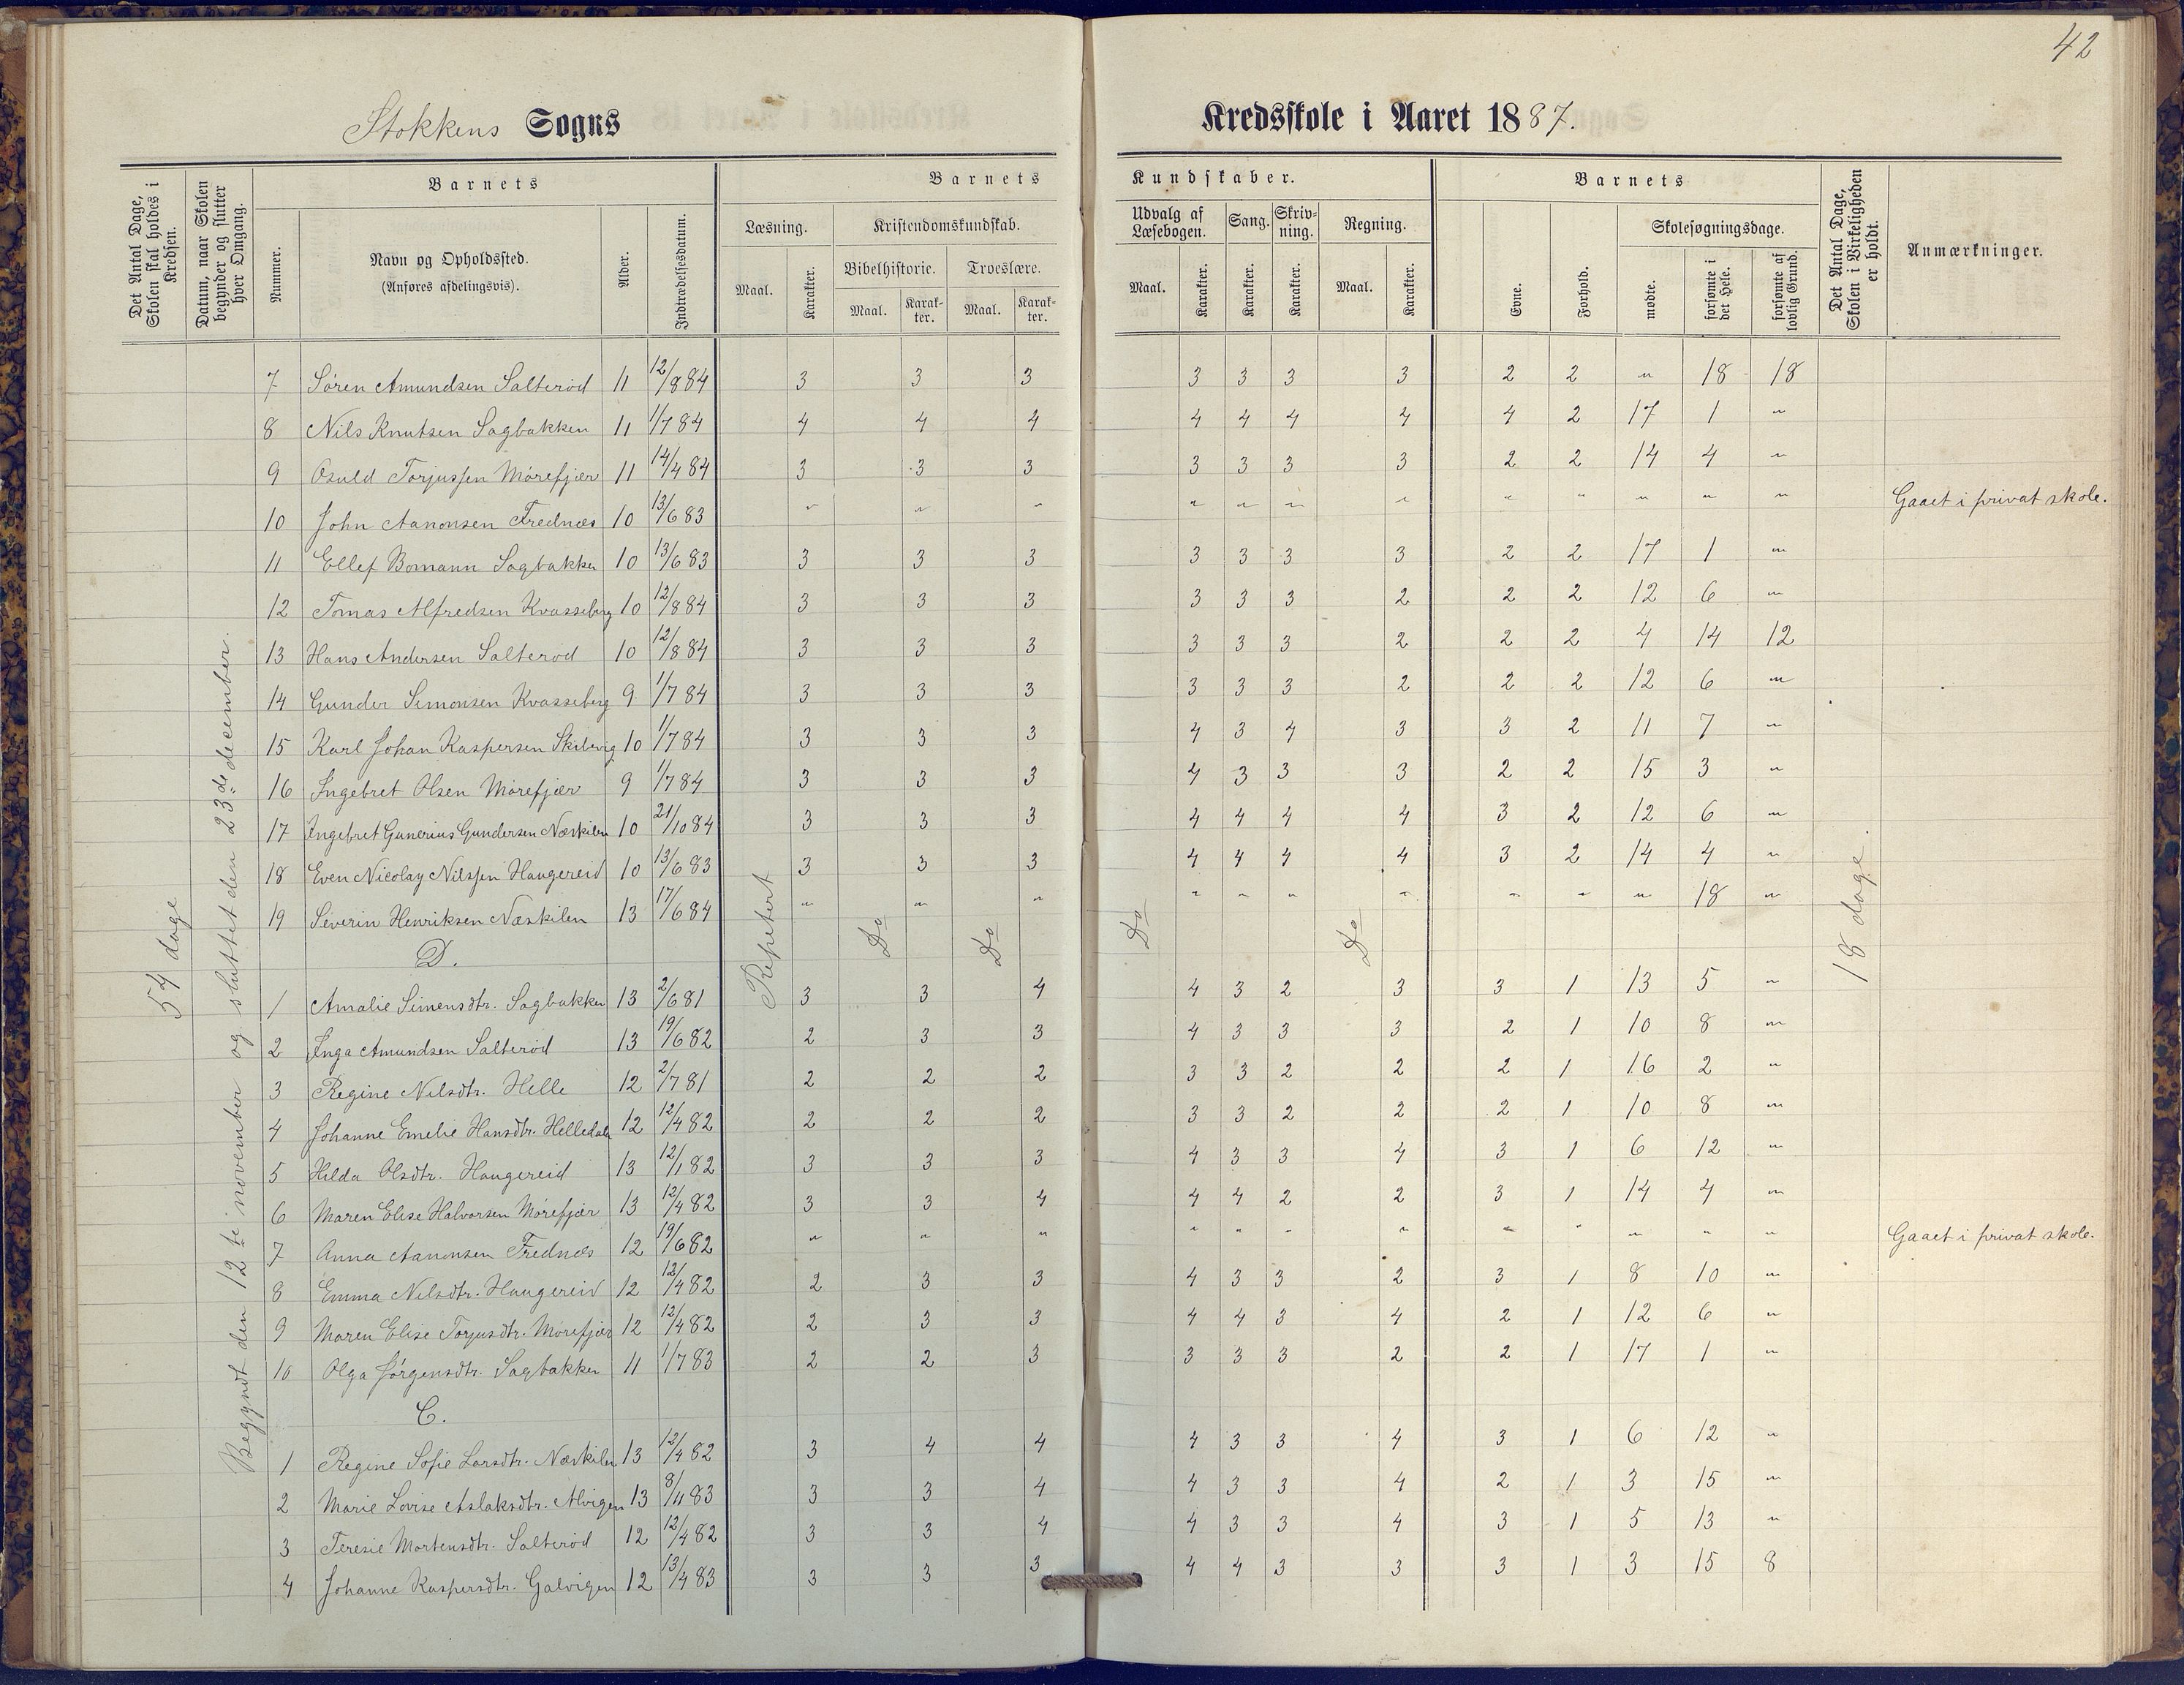 42
Stokkens Sogns Kredsskole i Aaret 1887.
Det Antal Dage, Skolen skal holdes i Kredsen.
Datum, naar Skolen begynder og slutter hver Omgang.
Barnets
Nummer.
Navn og Opholdssted.
(Anføres afdelingsvis).
Alder.
Indtrædelsesdatum.
Barnets Kundskaber.
Læsning.
Maal.
Karakter.
Kristendomskundskab.
Bibelhistorie.
Maal.
Karak-
ter.
Troeslære.
Maal.
Karak-
ter.
Udvalg af
Læsebogen.
Maal.
Karakter.
Sang.
Karakter.
Skriv-
ning.
Karakter.
Regning.
Maal.
Karakter.
Barnets
Evne.
Forhold.
Skolesøgningsdage.
mødte.
forsømte i det Hele.
forsømte af lovlig Grund.
Det Antal Dage, Skolen i Virkeligheden er holdt.
Anmærkninger.
54 dage
Begyndt den 12te november og sluttet den 23de december.
Repetert
Do
Do
Do
Do
18 dage.
7 Søren Amundsen Salterød 11 12/8 84 3 3 3 3 3 3 3 2 2 " 18 18
8 Nils Knutsen Sagbakken 11 1/7 84 4 4 4 4 4 4 4 4 2 17 1 "
9 Osuld Torjussen Mörefjær 11 14/4 84 3 3 3 3 3 3 3 2 2 14 4 "
10 John Aanonsen Frednæs 10 13/6 83 " " " " " " " " " " " " Gaaet i privat skole.
11 Ellef Bomann Sagbakken 10 13/6 83 3 3 3 3 3 3 3 2 2 17 1 "
12 Tomas Alfredsen Kvasseberg 10 12/8 84 3 3 3 3 3 3 2 2 2 12 6 "
13 Hans Andersen Salterød 10 12/8 84 3 3 3 3 3 3 2 2 2 4 14 12
14 Gunder Simonsen Kvasseberg 9 1/7 84 3 3 3 3 3 3 2 2 2 12 6 "
15 Karl Johan Kaspersen Skibvig 10 1/7 84 3 3 3 4 3 4 3 3 2 11 7 "
16 Ingebret Olsen Mörefjær 9 1/7 84 3 3 3 4 3 3 3 2 2 15 3 "
17 Ingebret Gunerius Gundersen Næskilen 10 21/10 84 3 3 3 4 4 4 4 3 2 12 6 "
18 Even Nicolay Nilssen Haugereid 10 13/6 83 3 3 3 4 4 4 4 3 2 14 4 "
19 Severin Henriksen Næskilen 13 17/6 84 " " " " " " " " " " 18 "
D.
1 Amalie Simensdtr. Sagbakken 13 2/6 81 3 3 4 4 3 2 3 3 1 13 5 "
2 Inga Amundsen Salterød 13 19/6 82 2 3 3 4 3 3 3 2 1 10 8 "
3 Regine Nilsdtr. Helle 12 2/7 81 2 2 2 3 3 2 2 2 1 16 2 "
4 Johanne Emelie Hansdtr. Helledalen 12 12/4 82 2 2 2 3 3 2 2 2 1 10 8 "
5 Hilda Olsdtr. Haugereid 13 12/1 82 3 3 3 4 3 3 4 3 1 6 12 "
6 Maren Elise Halvorsen Mörefjær 13 12/4 82 3 3 4 4 4 2 2 3 1 14 4 "
7 Anna Aanonsen Frednæs 12 19/6 82 " " " " " " " " " " " " Gaaet i privat skole.
8 Emma Nilsdtr. Haugereid 12 12/4 82 2 3 3 4 3 3 2 3 1 8 10 "
9 Maren Elise Torjusdtr. Mörefjær 12 12/4 82 2 3 3 4 4 3 4 2 1 12 6 "
10 Olga Jörgensdtr. Sagbakken 11 1/7 83 2 2 3 3 3 3 2 2 1 17 1 "
C.
1 Regine Sofie Larsdtr. Næskilen 13 12/4 82 3 4 4 4 3 3 4 3 1 6 12 "
2 Marie Lovise Aslaksdtr. Alvigen 13 8/11 83 3 3 4 4 3 3 4 2 1 3 15 "
3 Teresie Mortensdtr. Salterød 12 12/4 82 3 3 4 4 3 3 4 3 1 5 13 "
4 Johanne Kaspersdtr. Galvigen 12 13/4 83 3 3 3 4 4 3 3 3 1 3 15 8